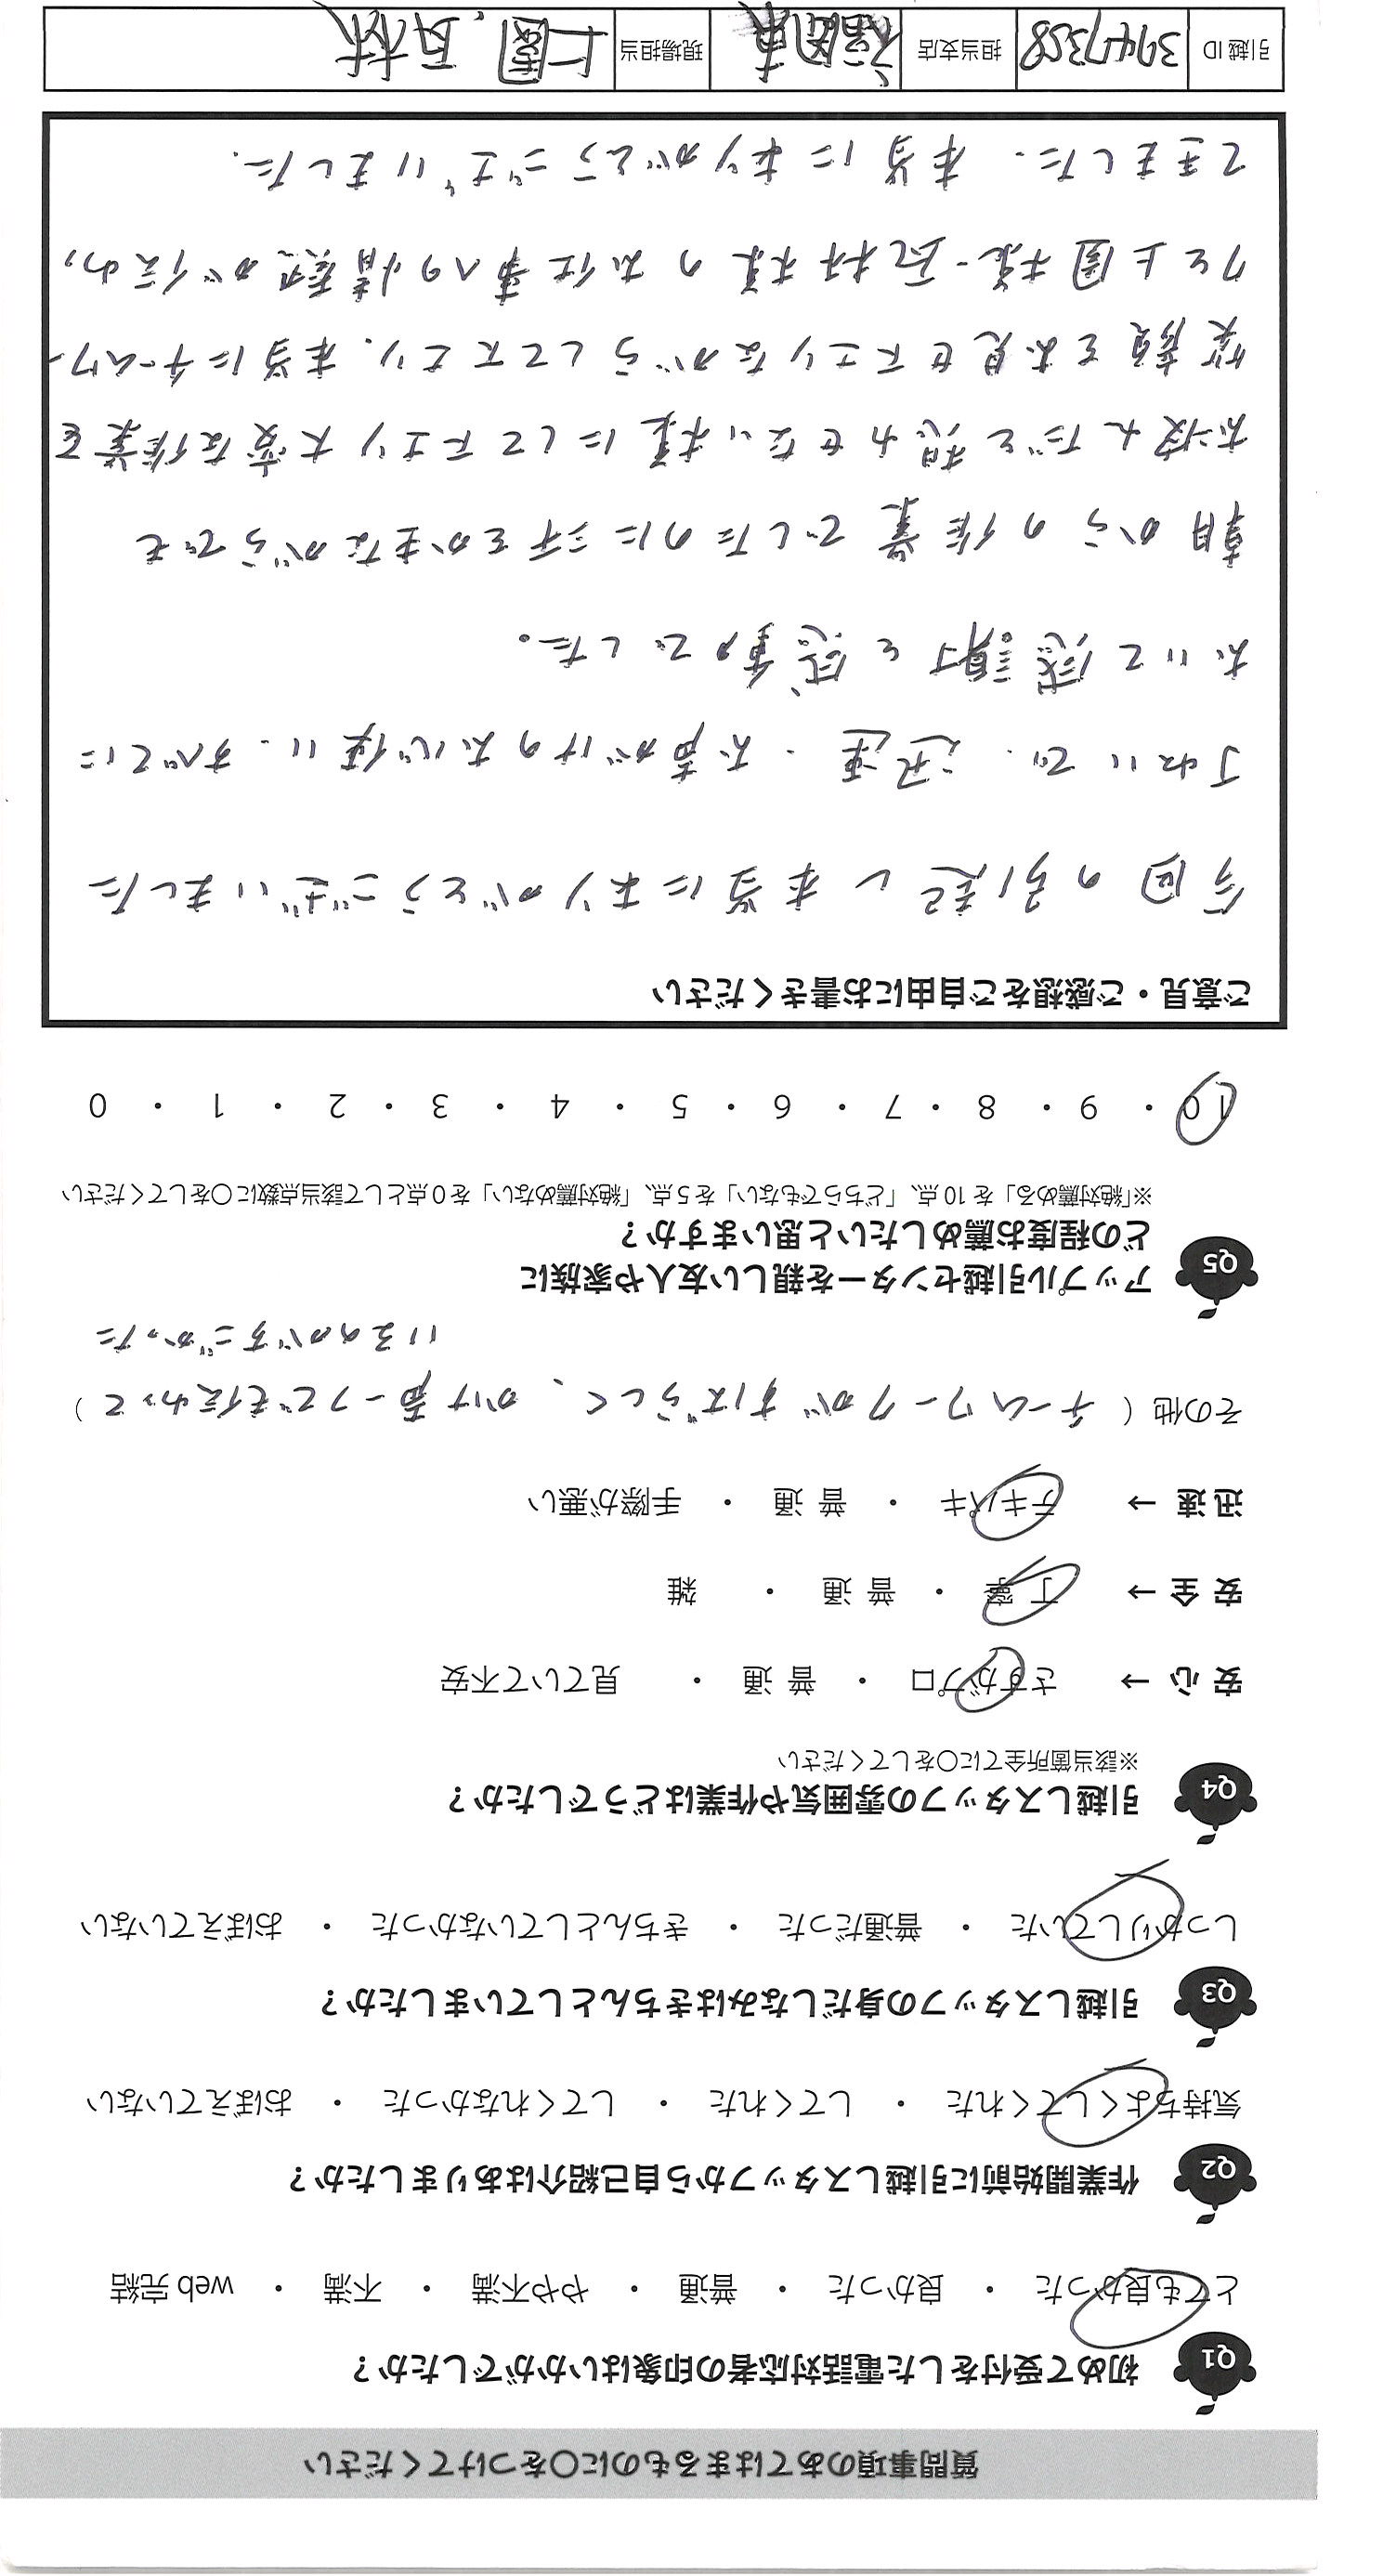 質問事項のあてはまるものに〇をつけてください
Q1 初めて受付をした電話対応者の印象はいかがでしたか？
とても良かった ・ 良かった ・ 普通 ・ やや不満 ・ 不満 ・ web 完結
Q2 作業開始前に引越しスタッフから自己紹介はありましたか？
気持ちよくしてくれた ・ してくれた ・ してくれなかった ・ おぼえていない
Q3 引越しスタッフの身だしなみはきちんとしていましたか？
しっかりしていた ・ 普通だった ・ きちんとしていなかった ・ おぼえていない
Q4 引越しスタッフの雰囲気や作業はどうでしたか？
※該当箇所全てに〇をしてください
安 心 → さすがプロ ・ 普 通 ・ 見ていて不安
安 全 → 丁 寧 ・ 普 通 ・ 雑
迅 速 → テキパキ ・ 普 通 ・ 手際が悪い
その他（ チームワークがすばらしく、かけ声一つでも伝わって ）
いるのがすごかった
Q5 アップル引越センターを親しい友人や家族に
どの程度お薦めしたいと思いますか？
※「絶対薦める」を 10 点、「どちらでもない」を 5 点、「絶対薦めない」を 0 点として該当点数に〇をしてください
10 ・ 9 ・ 8 ・ 7 ・ 6 ・ 5 ・ 4 ・ 3 ・ 2 ・ 1 ・ 0
ご意見・ご感想をご自由にお書きください
今回の引越し本当にありがとうございました
丁ねいで、迅速・お声がけのお心使い、すべてに
おいて感謝と感動でした。
朝からの作業でしたのに汗をかきながらでも
お疲れだと思わせない様にして下エリ大変な作業を
笑顔をお見せ下エリながらして下エリ、本当にチームワー
クと上園様・瓦林様のお仕事への情熱が伝わっ
てきました。本当にありがとうございました。
引越 ID 3947358 担当支店 福岡東 現場担当 上園、瓦林